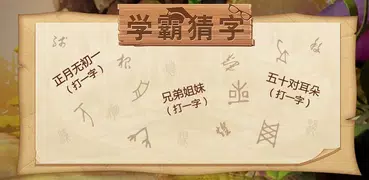 学霸猜字
正月无初一
（打一字）
兄弟姐妹
（打一字）
五十对耳朵
（打一字）